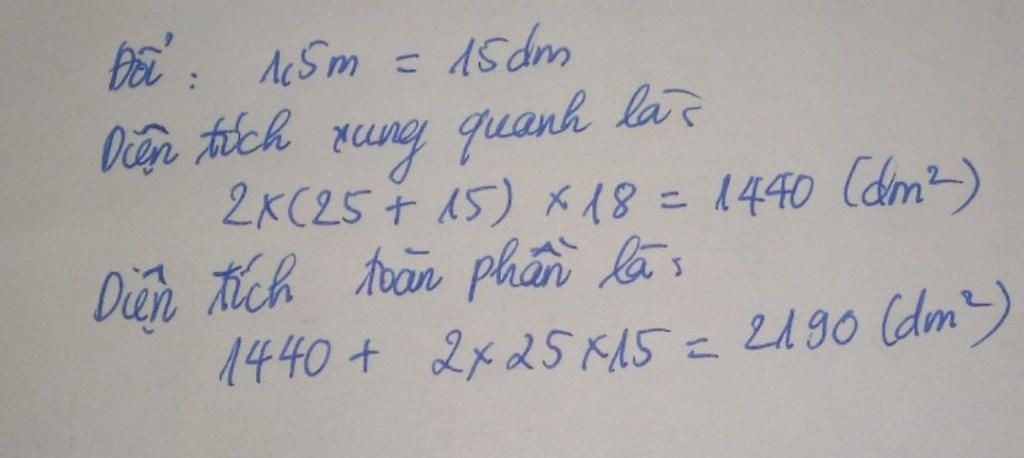 Đổi : 1,5m = 15dm
Diện tích xung quanh là :
2x(25 + 15) x 18 = 1440 (dm²)
Diện tích toàn phần là :
1440 + 2x25x15 = 2190 (dm²)